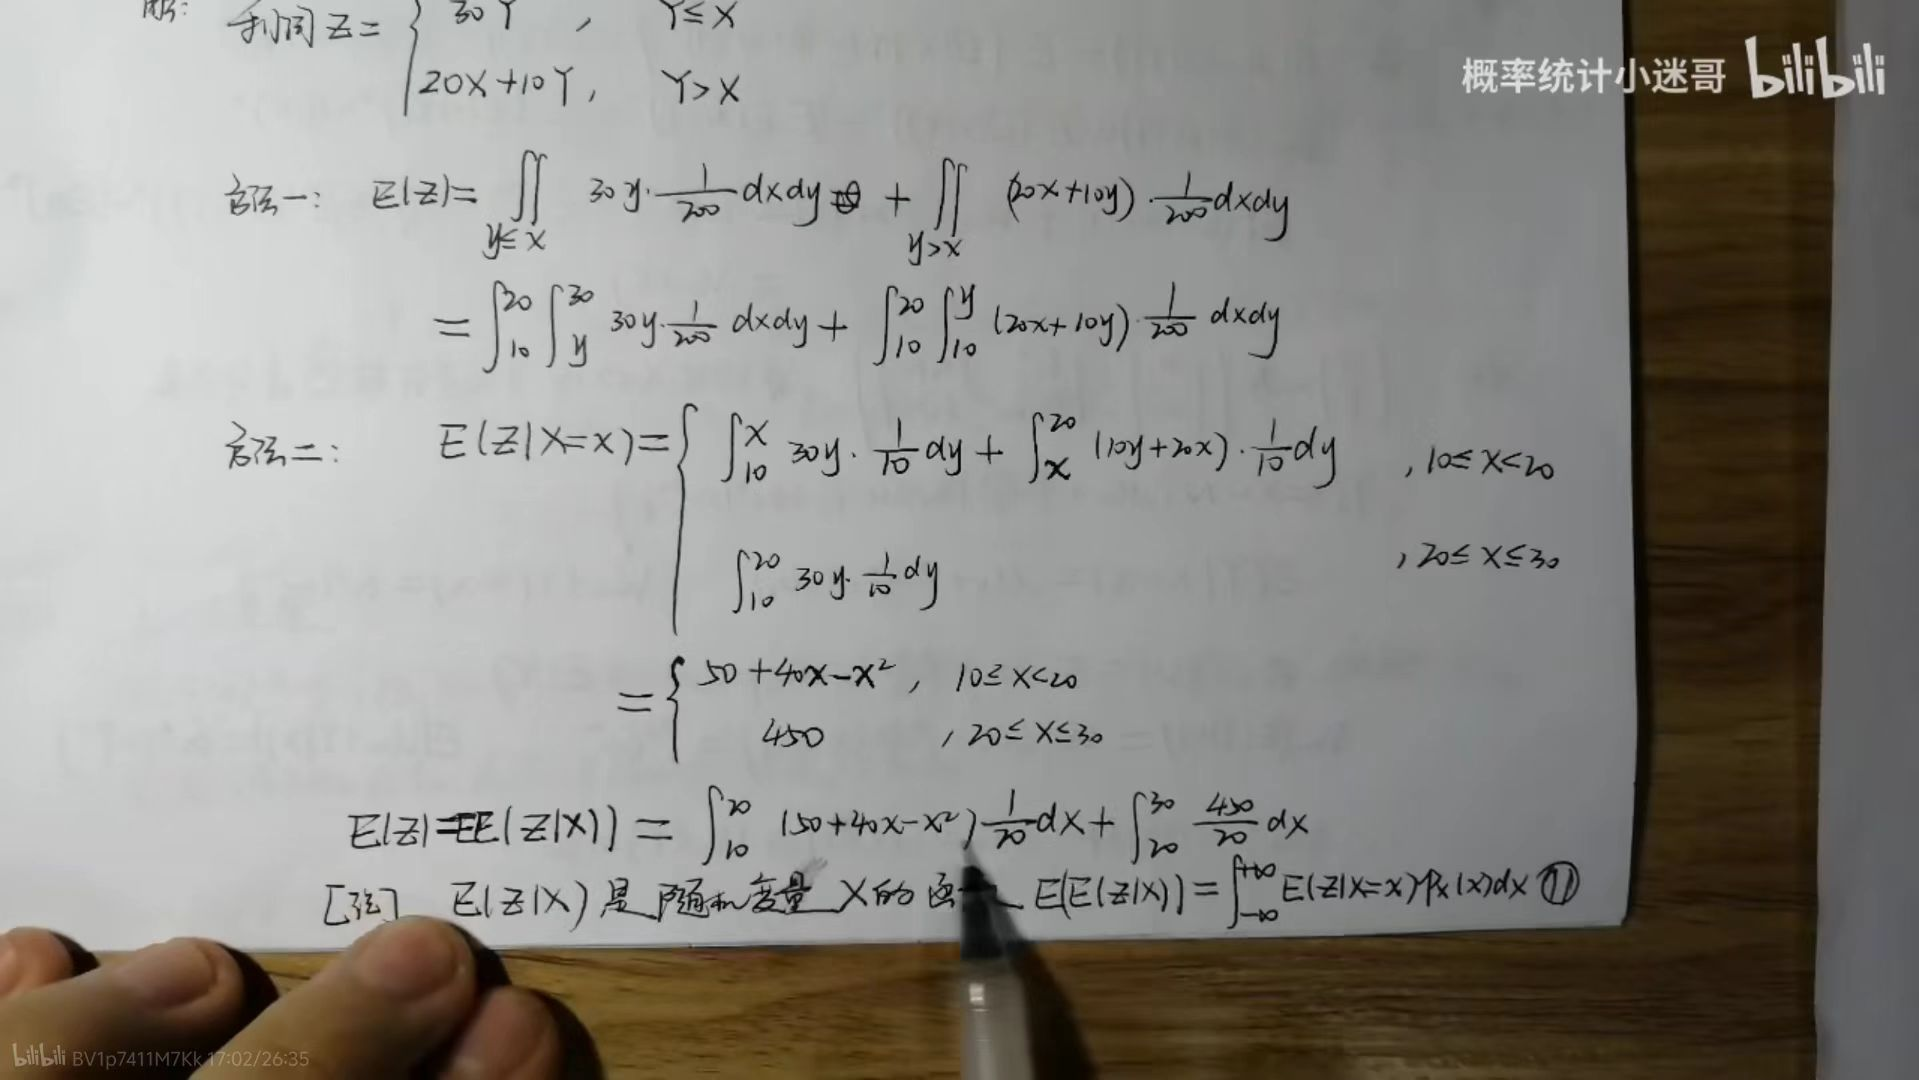 解: 利润 Z = { 30Y , Y ≤ X
20X+10Y , Y > X
概率统计小迷哥 bilibili
方法一: E(Z) = ∬_{y≤x} 30y·1/200 dxdy + ∬_{y>x} (20x+10y)·1/200 dxdy
= ∫_{10}^{20} ∫_{y}^{30} 30y·1/200 dxdy + ∫_{10}^{20} ∫_{10}^{y} (20x+10y)·1/200 dxdy
方法二: E(Z|X=x) = { ∫_{10}^{x} 30y·1/10 dy + ∫_{x}^{20} (10y+20x)·1/10 dy , 10≤x<20
∫_{10}^{20} 30y·1/10 dy , 20≤x≤30
= { 50+40x−x² , 10≤x<20
450 , 20≤x≤30
E(Z)=E(E(Z|X)) = ∫_{10}^{20} (50+40x−x²) 1/20 dx + ∫_{20}^{30} 450/20 dx
[注] E(Z|X) 是随机变量 X的 E(E(Z|X)) = ∫_{−∞}^{+∞} E(Z|X=x) p_X(x)dx ⑪
bilibili BV1p7411M7Kk 17:02/26:35